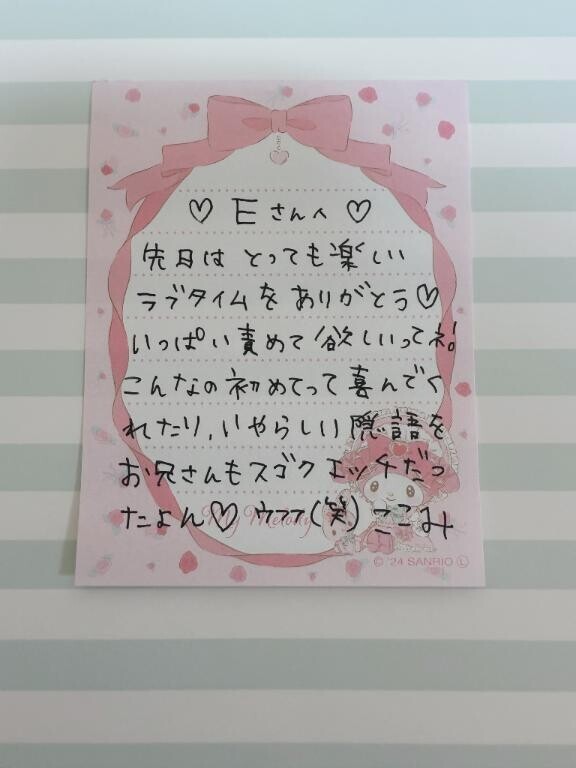 ♡ Eさんへ ♡
先日は とっても楽しい
ラブタイムを ありがとう♡
いっぱい責めて欲しいってネ!
こんなの初めてって喜んでく
れたり, いやらしい隠語を
お兄さんもスゴクエッチだっ
たよん♡ ウフフ(笑) ここみ
My Melody
© '24 SANRIO Ⓛ